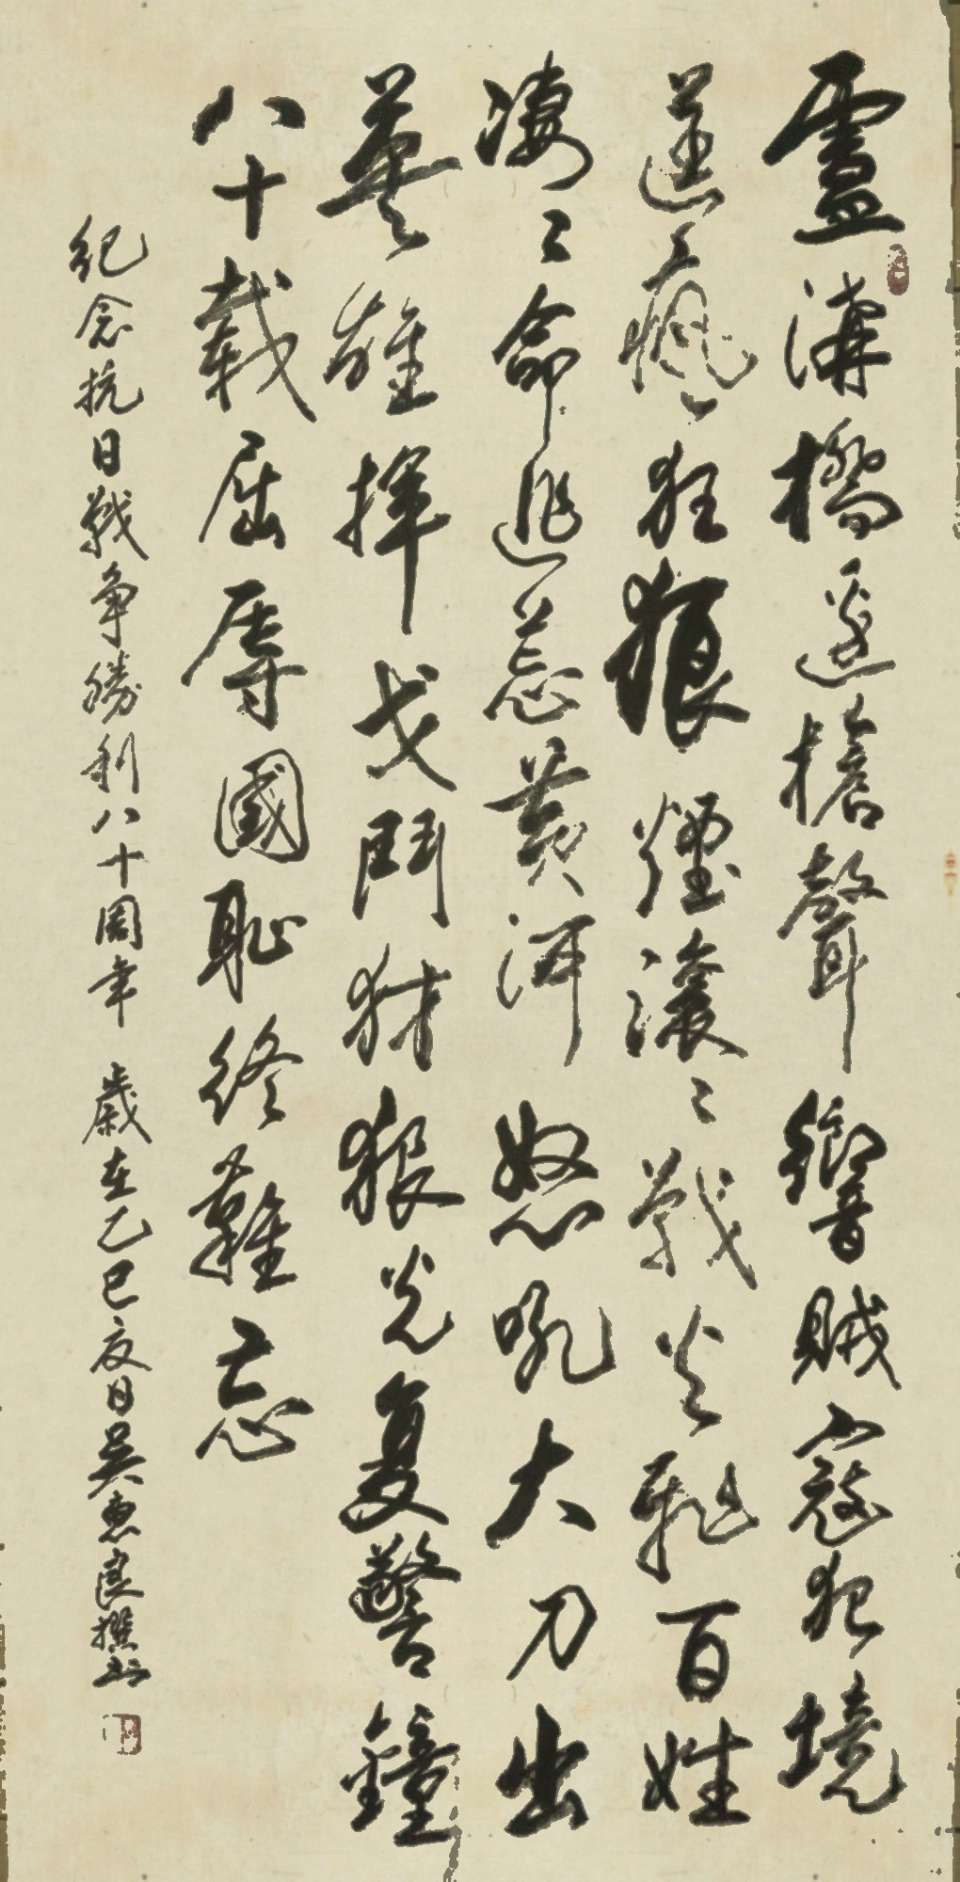 盧溝橋邊槍聲響賊寇犯境
逞瘋狂狼煙滾〻戰火百姓
凄〻命逃荒黃河怒吼大刀出
英雄揮戈鬥豺狼光复警鐘
八十載屈辱國恥終難忘
紀念抗日戰争勝利八十周年 歲在乙巳夏日吳惠良撰书